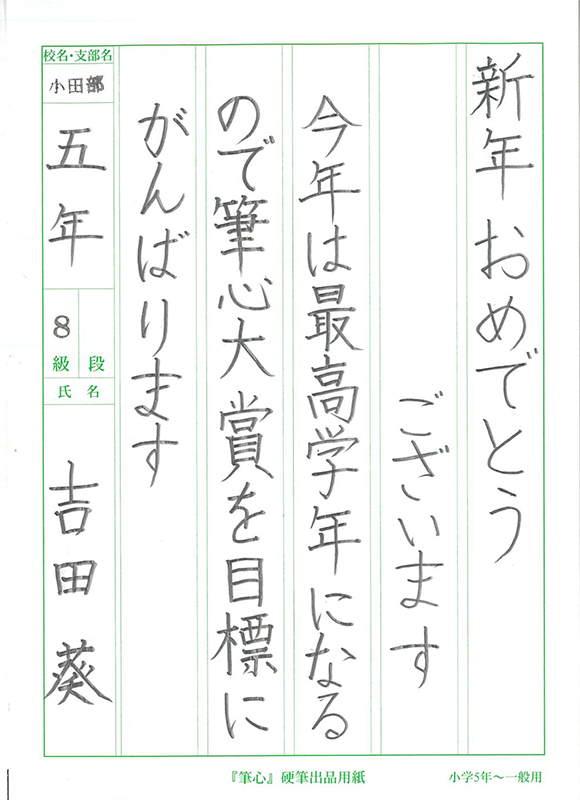 新年おめでとう
ございます
今年は最高学年になる
ので筆心大賞を目標に
がんばります
校名・支部名
小田部
五年
8
級 段
氏 名
吉田葵
『筆心』硬筆出品用紙
小学5年～一般用